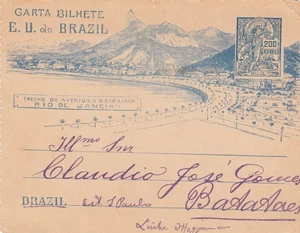 CARTA BILHETE
E. U. do BRAZIL
200
TRECHO DA AVENIDA BEIRA MAR
RIO DE JANEIRO
Ill.mo Snr
Claudio José Gomes
Batataes
BRAZIL Est. S. Paulo
Linha Mogyana